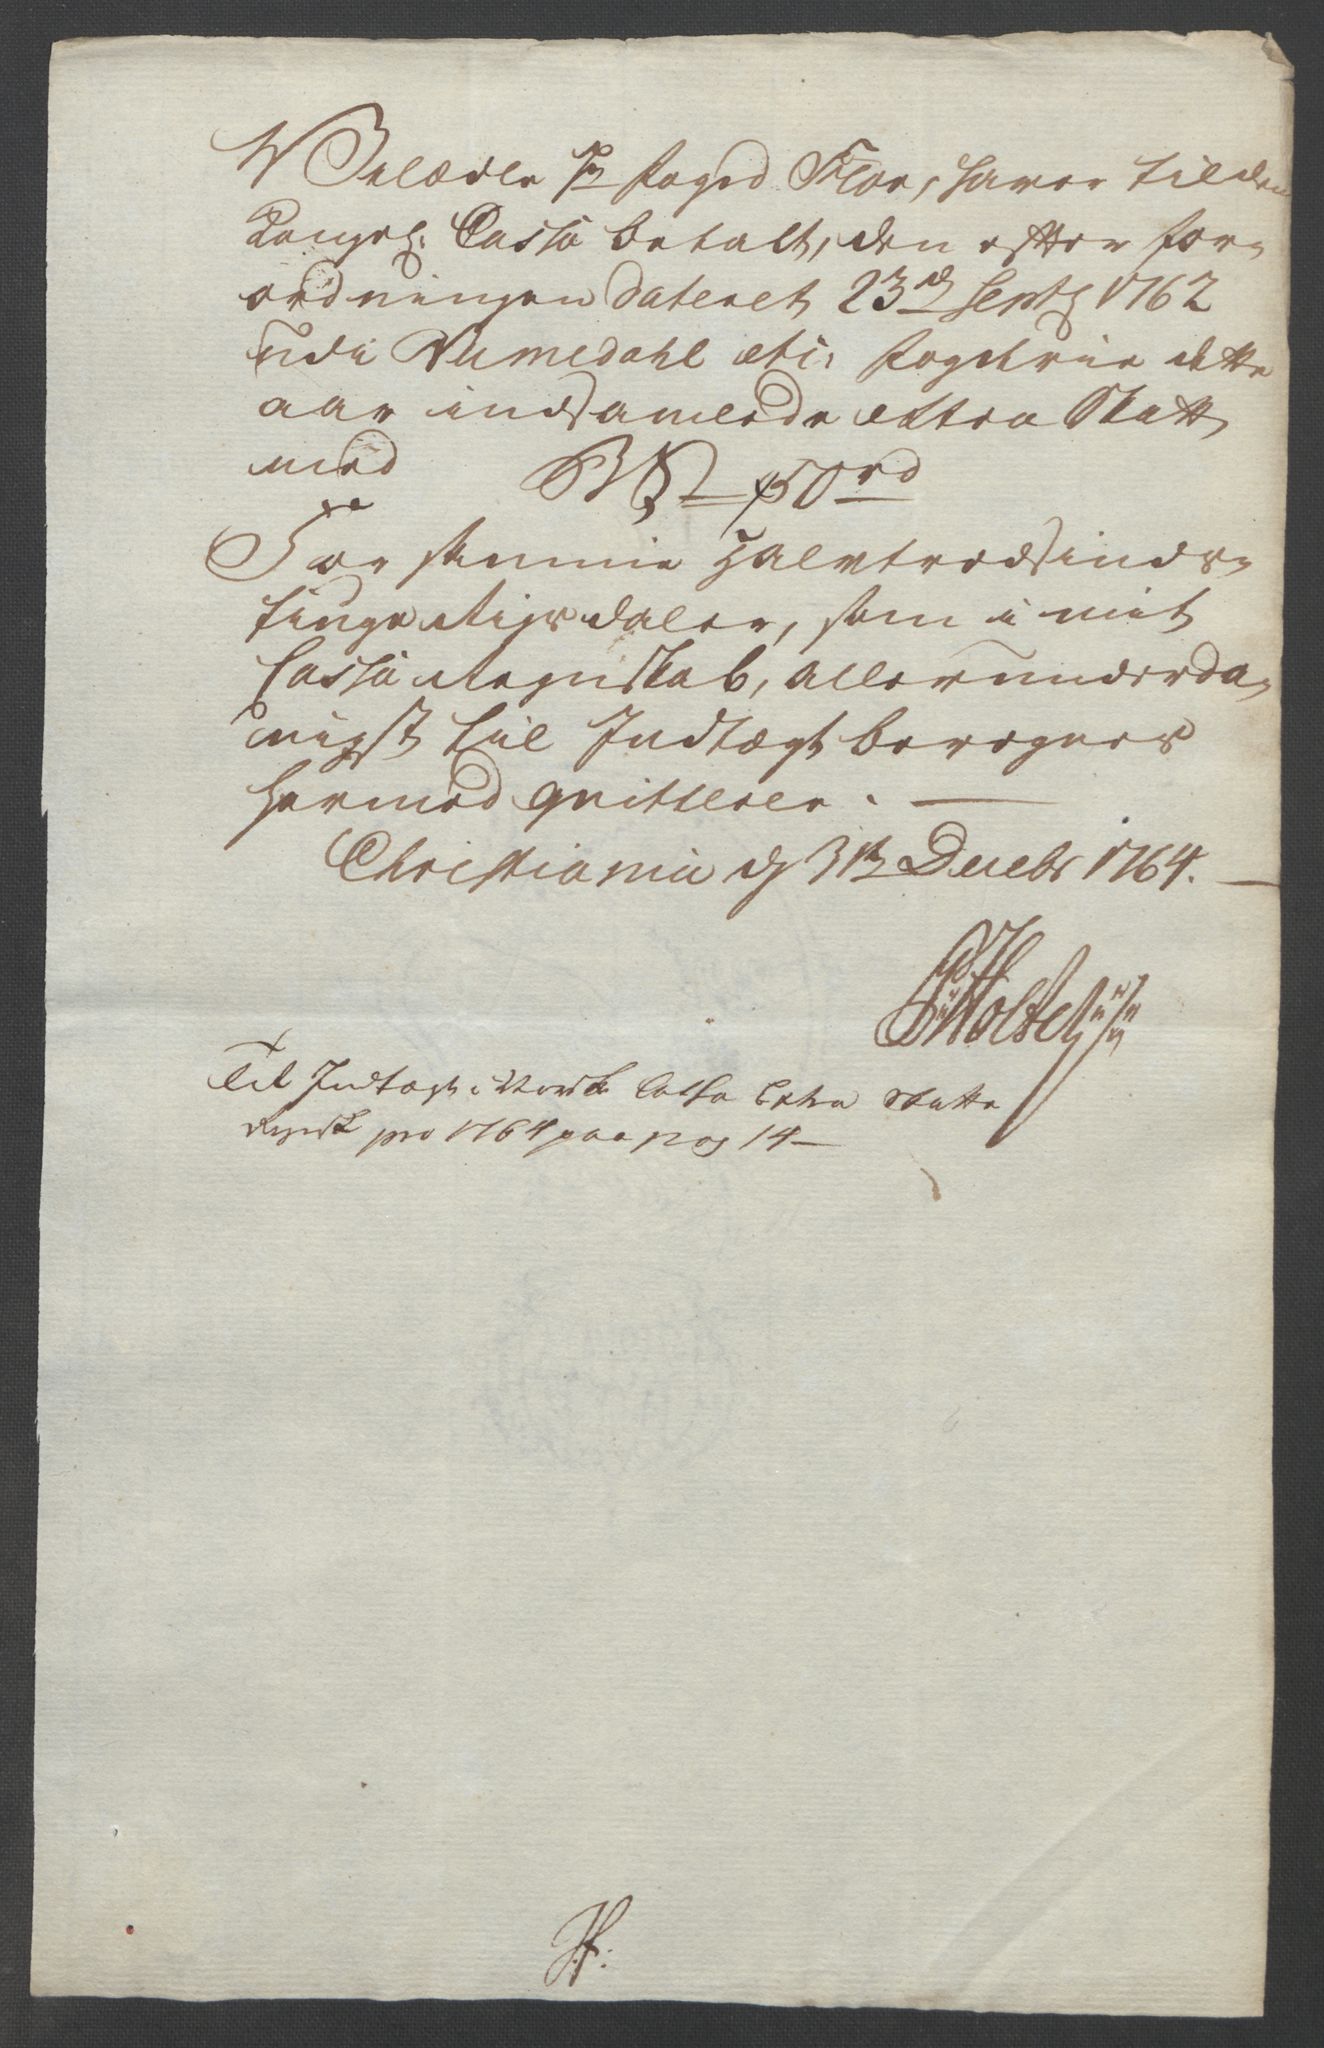 Velædle Hr Foged Flor, haver til den
Kongel: Cassa betalt, den efter for-
ordningen dateret 23de Septbr 1762
udi Numedahl etc: fogderie dette
aar indsamlede extra Skatt
med 50 rd
For samme Halvtredsinds-
tinge Rigsdaler, som i mit
Cassa Regnskab, allerunderda-
nigst til Indtægt beregnes
hermed qvitteres.
Christiania d 31te Decebr 1764.
Holst
Til Indtægt i Norsk Cassa Extra Skatte
Regnsk pro 1764 paa pag 14